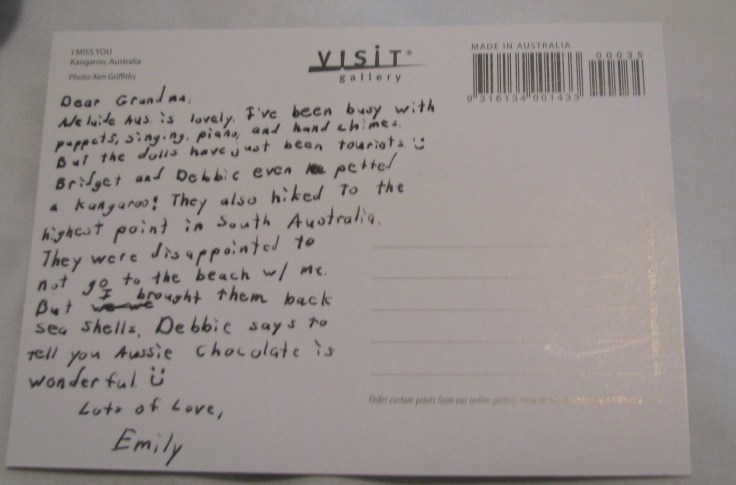 I MISS YOU
Kangaroo, Australia
Photo: Ken Griffiths
VISIT®
gallery
MADE IN AUSTRALIA
00035
9 316134 001433
Dear Grandma,
Adelaide Aus. is lovely. I've been busy with
puppets, singing, piano, and hand chimes.
But the dolls have just been tourists. :)
Bridget and Debbie even petted
a kangaroo! They also hiked to the
highest point in South Australia.
They were disappointed to
not go to the beach w/ me.
But I brought them back
sea shells. Debbie says to
tell you Aussie chocolate is
wonderful :)
Lots of Love,
Emily
Order custom prints from our online gallery